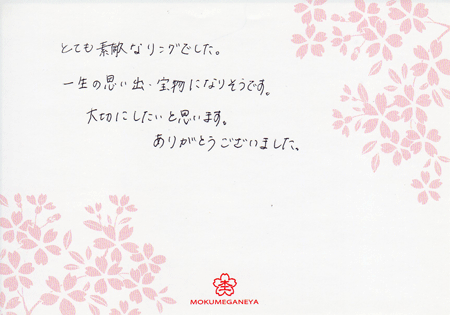 とても素敵なリングでした。
一生の思い出・宝物になりそうです。
大切にしたいと思います。
ありがとうございました。
MOKUMEGANEYA